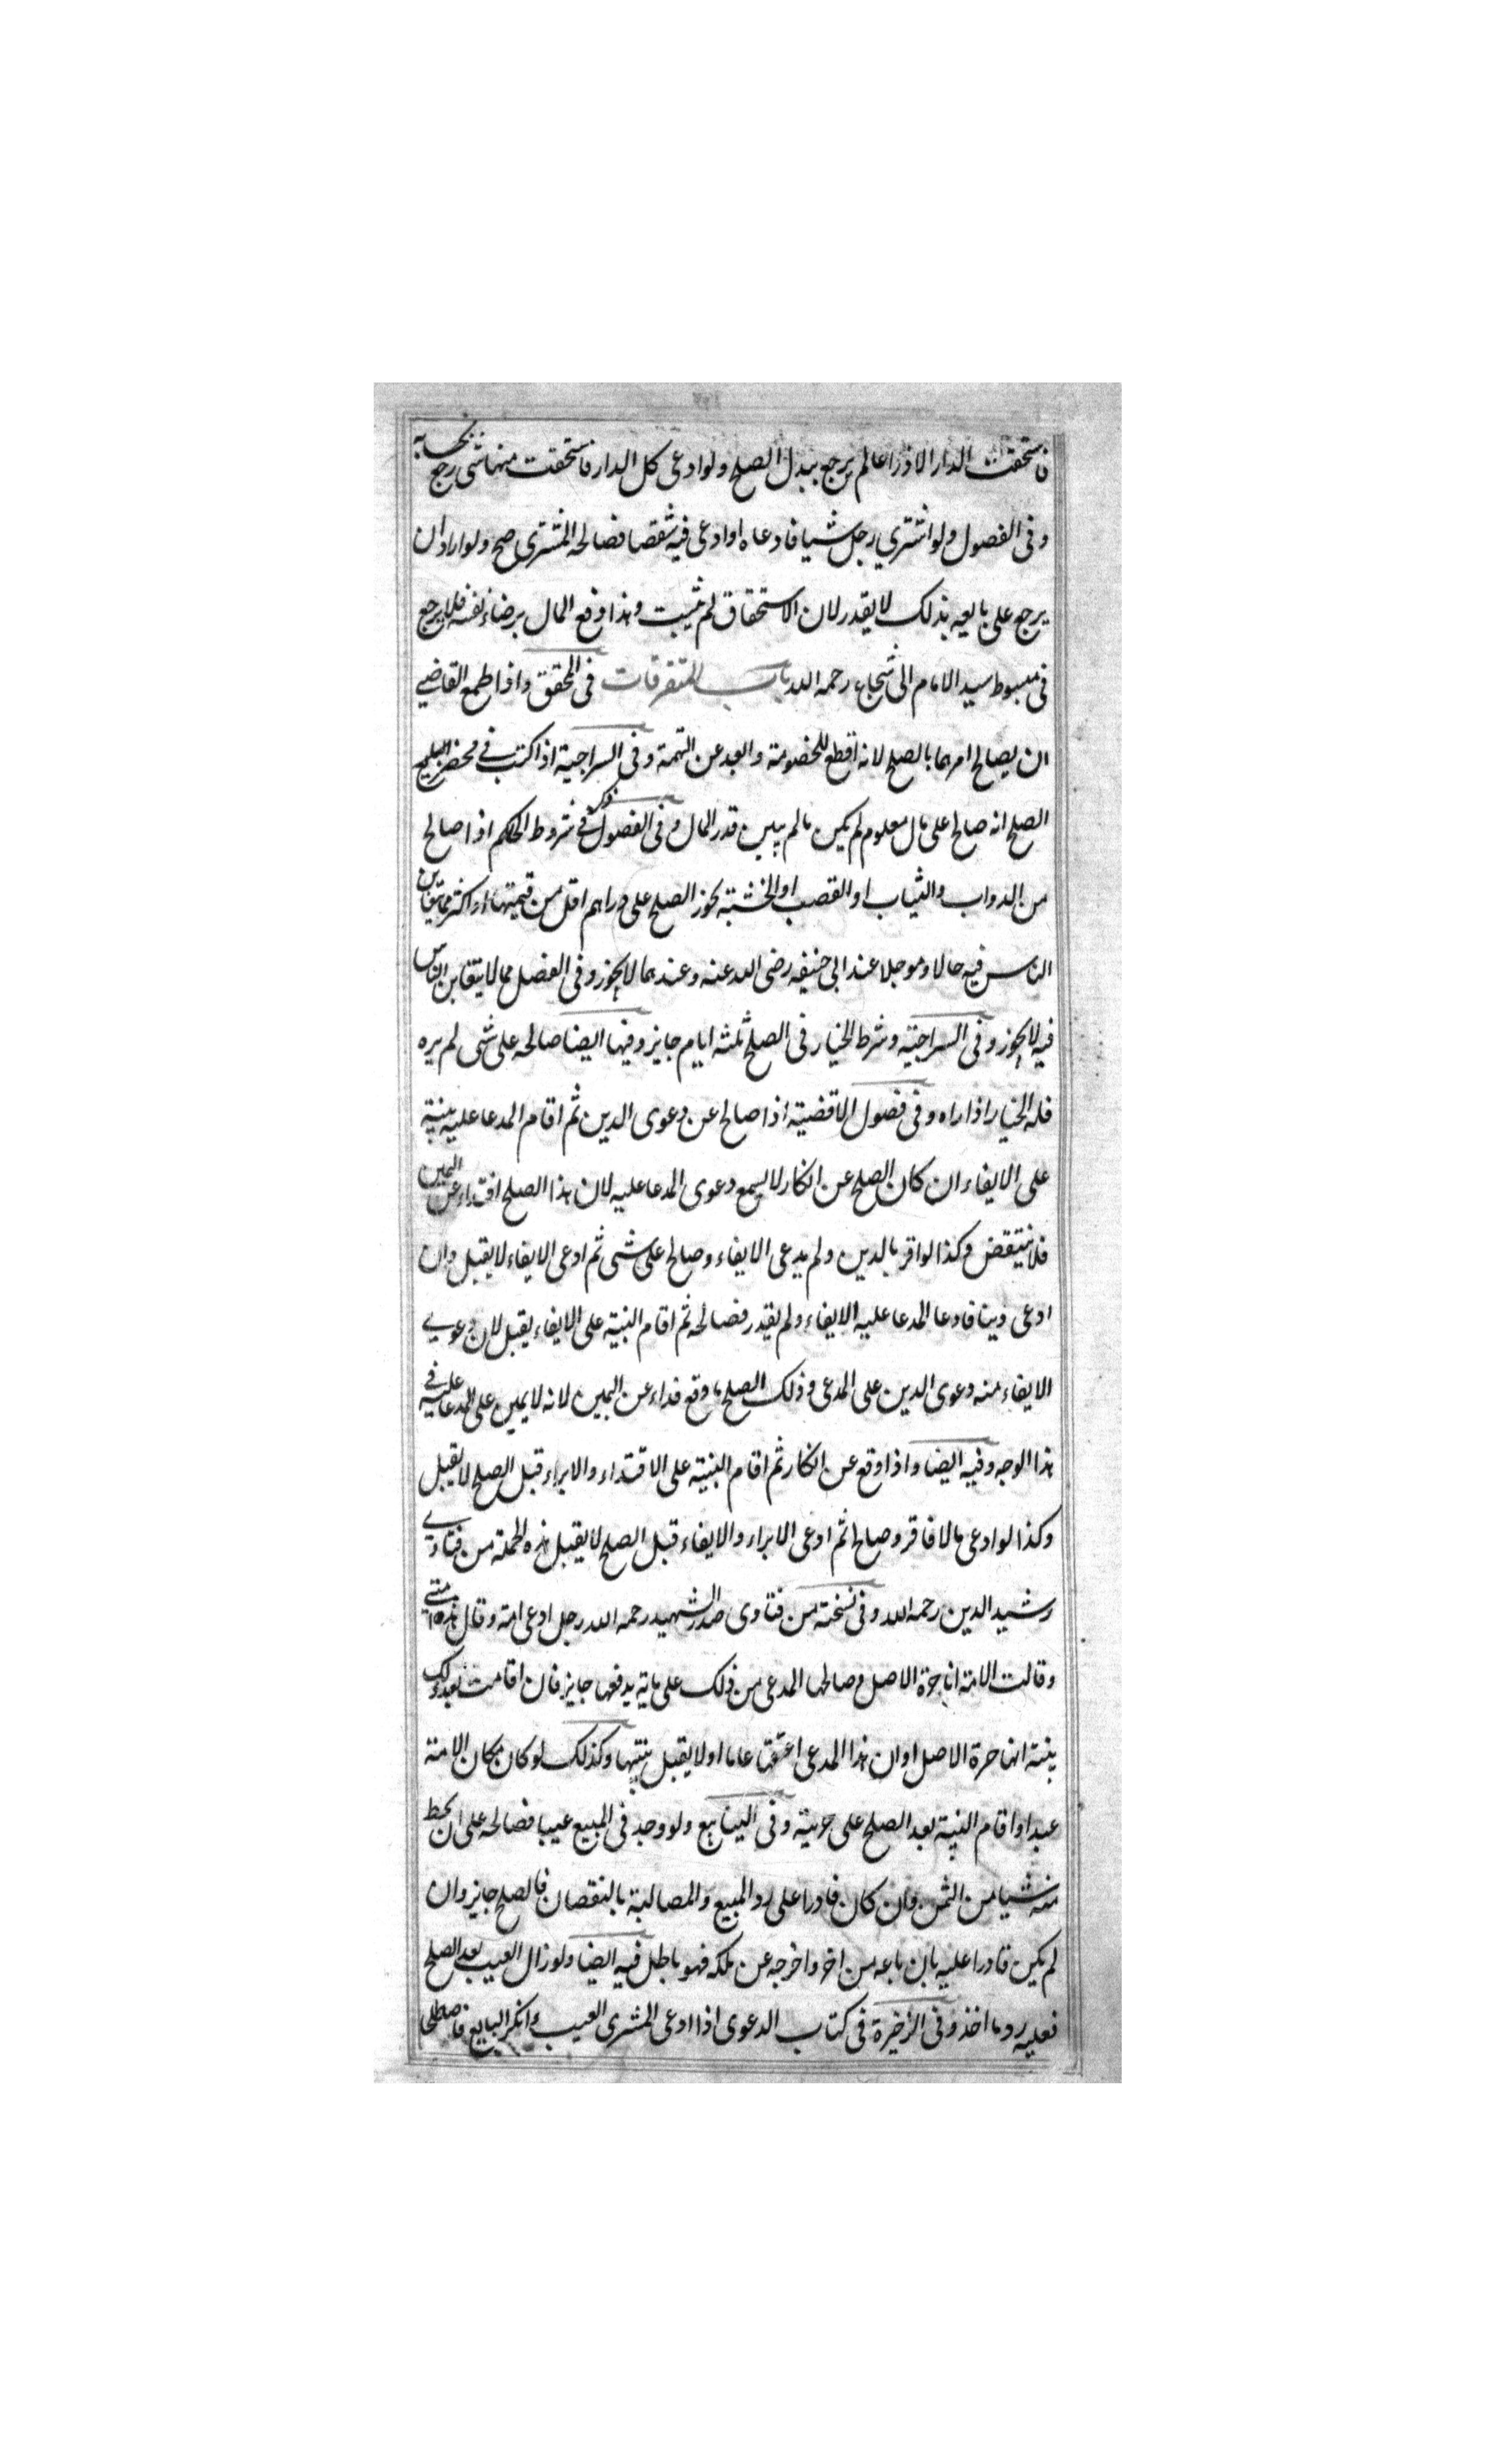 فاستحقت الدار الا ذراعا لم يرجع ببدل الصلح ولو ادعى كل الدار فاستحقت منها شى رجع بحسابه
وفى الفصول ولو اشترى رجل شيا فادعاه او ادعى فيه شقصا فصالحه المشترى صح ولو اراد ان
يرجع على بايعه بذلك لا يقدر لان الاستحقاق لم يثبت وهذا دفع المال برضاء نفسه فلا يرجع
فى مبسوط سيد الامام ابى شجاع رحمه الله باب المتفرقات فى المحقق واذا طمع القاضى
ان يصالح امرهما بالصلح لانه اقطع للخصومة وابعد عن التهمة وفى السراجية اذا كتب فى محضر
الصلح انه صالح على مال معلوم لم يكن ما لم يبين قدر المال وفى الفصول ذكر فى شروط الحاكم اذا صالح
من الدواب والثياب او القصب او الخشبة يجوز الصلح على دراهم اقل من قيمتها او اكثر مما يتغابن
الناس فيه حالا وموجلا عند ابى حنيفه رضى الله عنه وعندهما لا يجوز وفى الفضل مما لا يتغابن الناس
فيه لا يجوز وفى السراجية وشرط الخيار فى الصلح ثلثه ايام جايز وفيها ايضا صالحه على شى لم يره
فله الخيار اذا راه وفى فصول الاقضية اذا صالح عن دعوى الدين ثم اقام المدعا عليه بينة
على الايفاء ان كان الصلح عن انكار لا يسمع دعوى المدعا عليه لان هذا الصلح افتداء عن اليمين
فلا ينتقض وكذا لو اقر بالدين ولم يدعى الايفاء وصالح على شى ثم ادعى الايفاء لا يقبل وان
ادعى دينا فادعا المدعا عليه الايفاء ولم يقدر فصالحه ثم اقام البينة على الايفاء يقبل لان دعوى
الايفاء منه دعوى الدين على المدعى وذلك الصلح ما وقع فداء عن اليمين لانه لا يمين على المدعا عليه فى
هذا الوجه وفيه ايضا واذا وقع عن انكار ثم اقام البينة على الافتداء والابراء قبل الصلح لا يقبل
وكذا لو ادعى مالا فاقر وصالح ثم ادعى الابراء والايفاء قبل الصلح لا يقبل هذه الجملة من فتاوى
رشيد الدين رحمه الله وفى نسخة من فتاوى صدر الشهيد رحمه الله رجل ادعى امة وقال هذه امتى
وقالت الامة انا حرة الاصل وصالحها المدعى من ذلك على ماية يدفعها جايز فان اقامت بعد ذلك
بينة انها حرة الاصل او ان هذا المدعى اعتقها عاما اولا يقبل بينتها وكذلك لو كان مكان الامة
عبدا واقام البينة بعد الصلح على حريته وفى الينابيع ولو وجد فى المبيع عيبا فصالحه على ان يحط
منه شيا من الثمن وان كان قادرا على رد المبيع والمصالبة بالنقصان فالصلح جايز وان
لم يكن قادرا عليه بان باعه من اخر واخرجه عن ملكه فهو باطل فيه ايضا ولو زال العيب بعد الصلح
فعليه رد ما اخذ وفى الذخيرة فى كتاب الدعوى اذا ادعى المشترى العيب وانكر البايع فاصطلحا